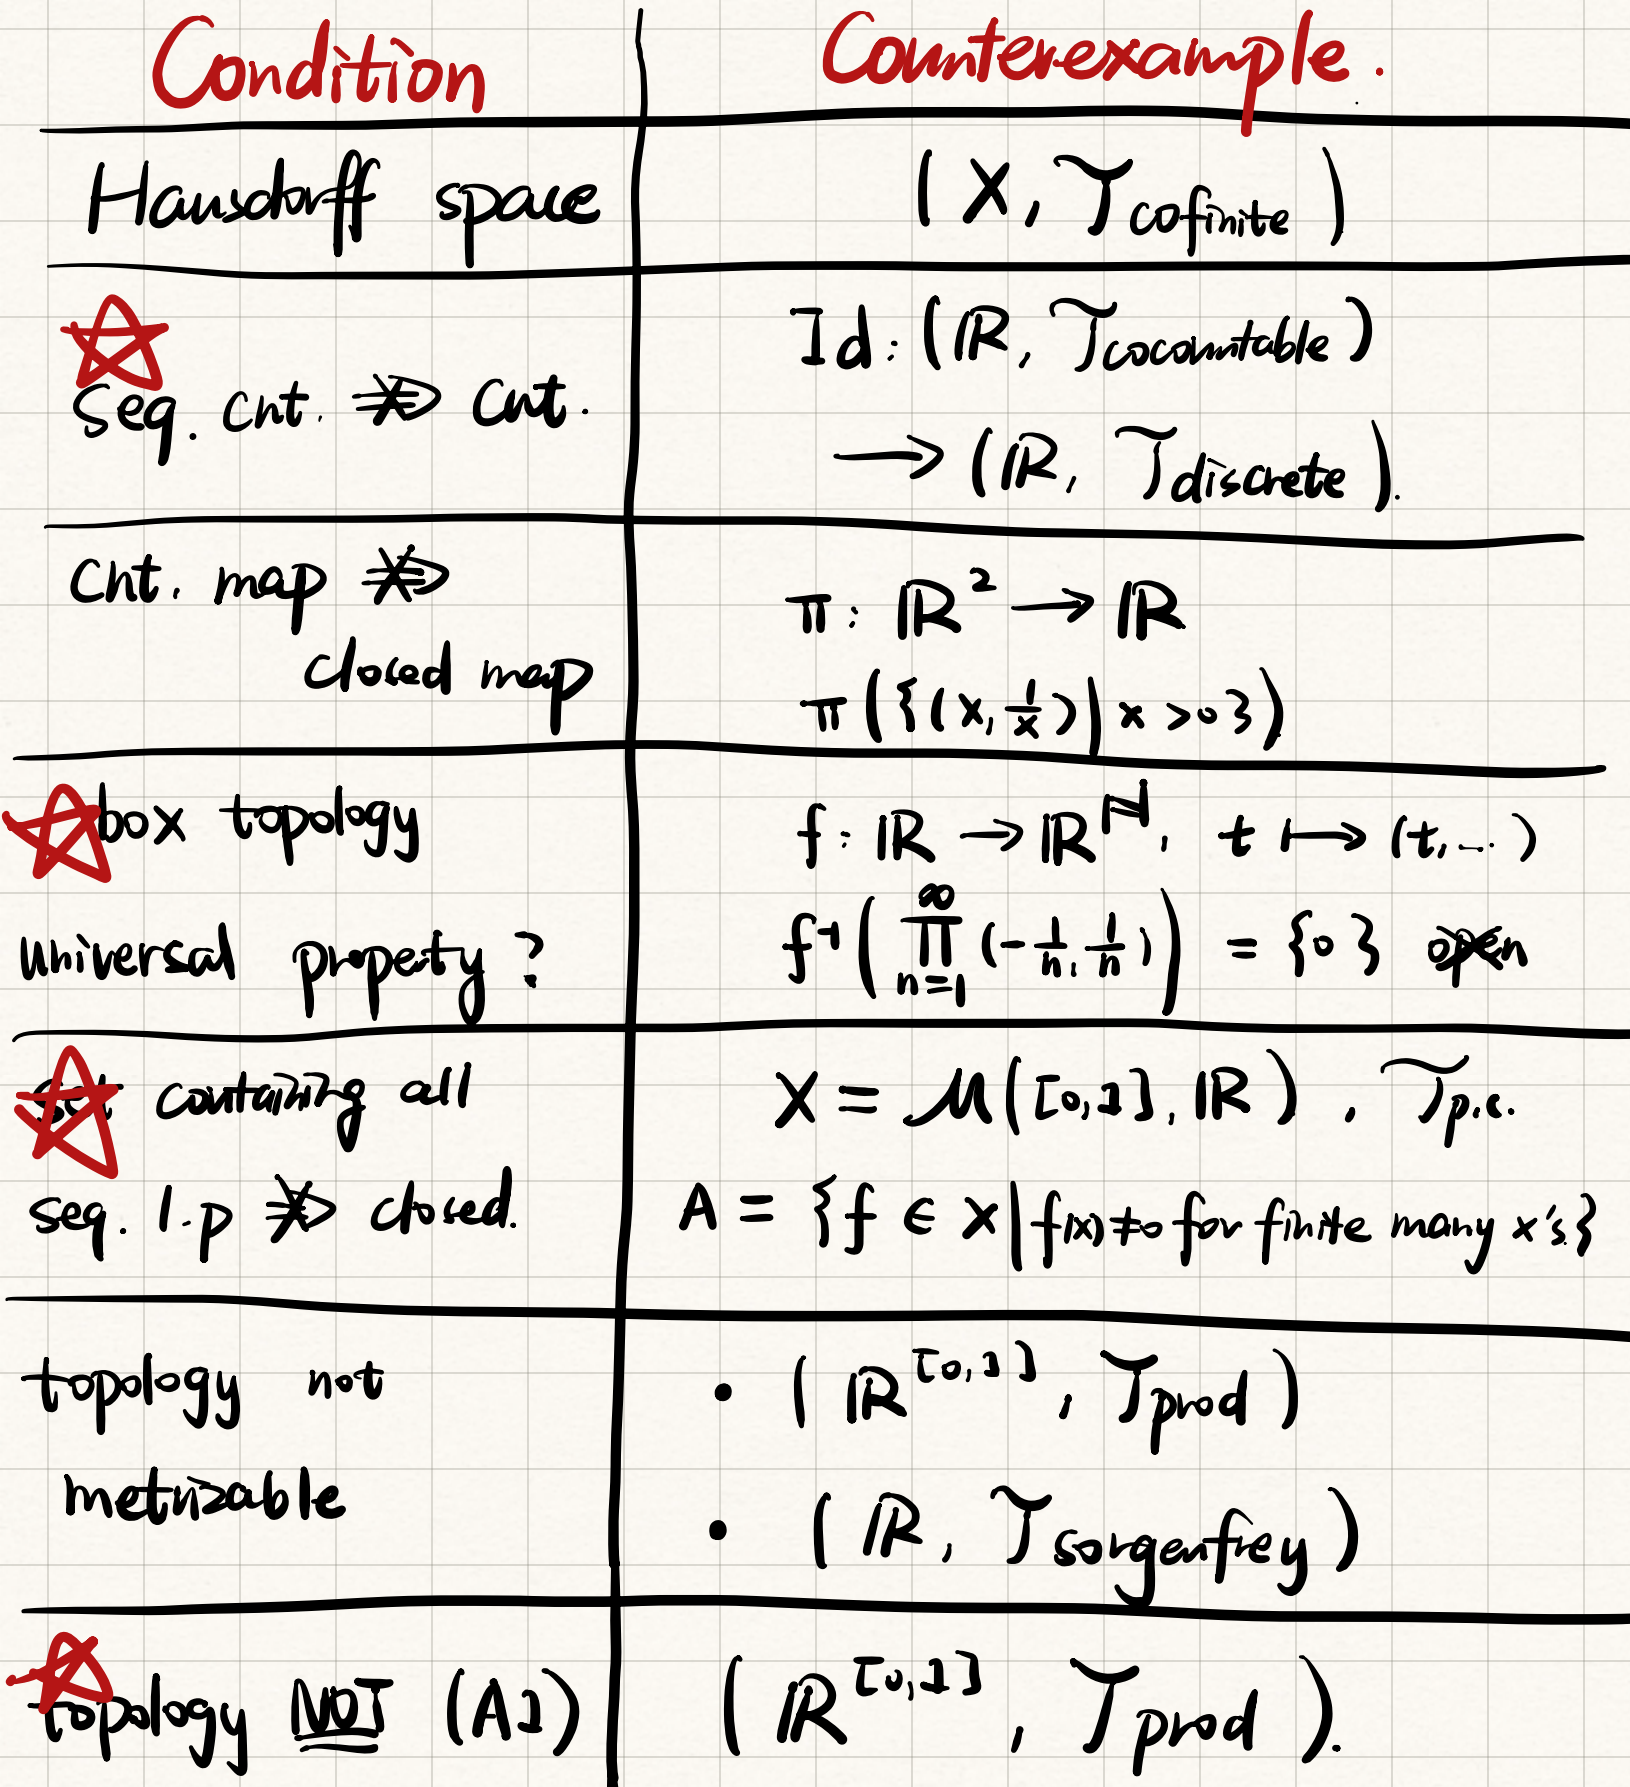 Condition Counterexample.
Hausdorff space (X, 𝒯_cofinite)
Seq. cnt. ⇏ cnt. Id: (ℝ, 𝒯_cocountable)
→ (ℝ, 𝒯_discrete).
Cnt. map ⇏ π: ℝ² → ℝ
closed map π({(x, 1/x) | x > 0})
box topology f: ℝ → ℝ^ℕ, t ↦ (t, ...)
universal property? f⁻¹(∏_{n=1}^∞ (-1/n, 1/n)) = {0} open
set containing all X = ℳ([0,1], ℝ), 𝒯_p.c.
seq. l.p ⇏ closed. A = {f ∈ X | f(x) ≠ 0 for finite many x's}
topology not • (ℝ^[0,1], 𝒯_prod)
metrizable • (ℝ, 𝒯_sorgenfrey)
topology NOT (A1) (ℝ^[0,1], 𝒯_prod).